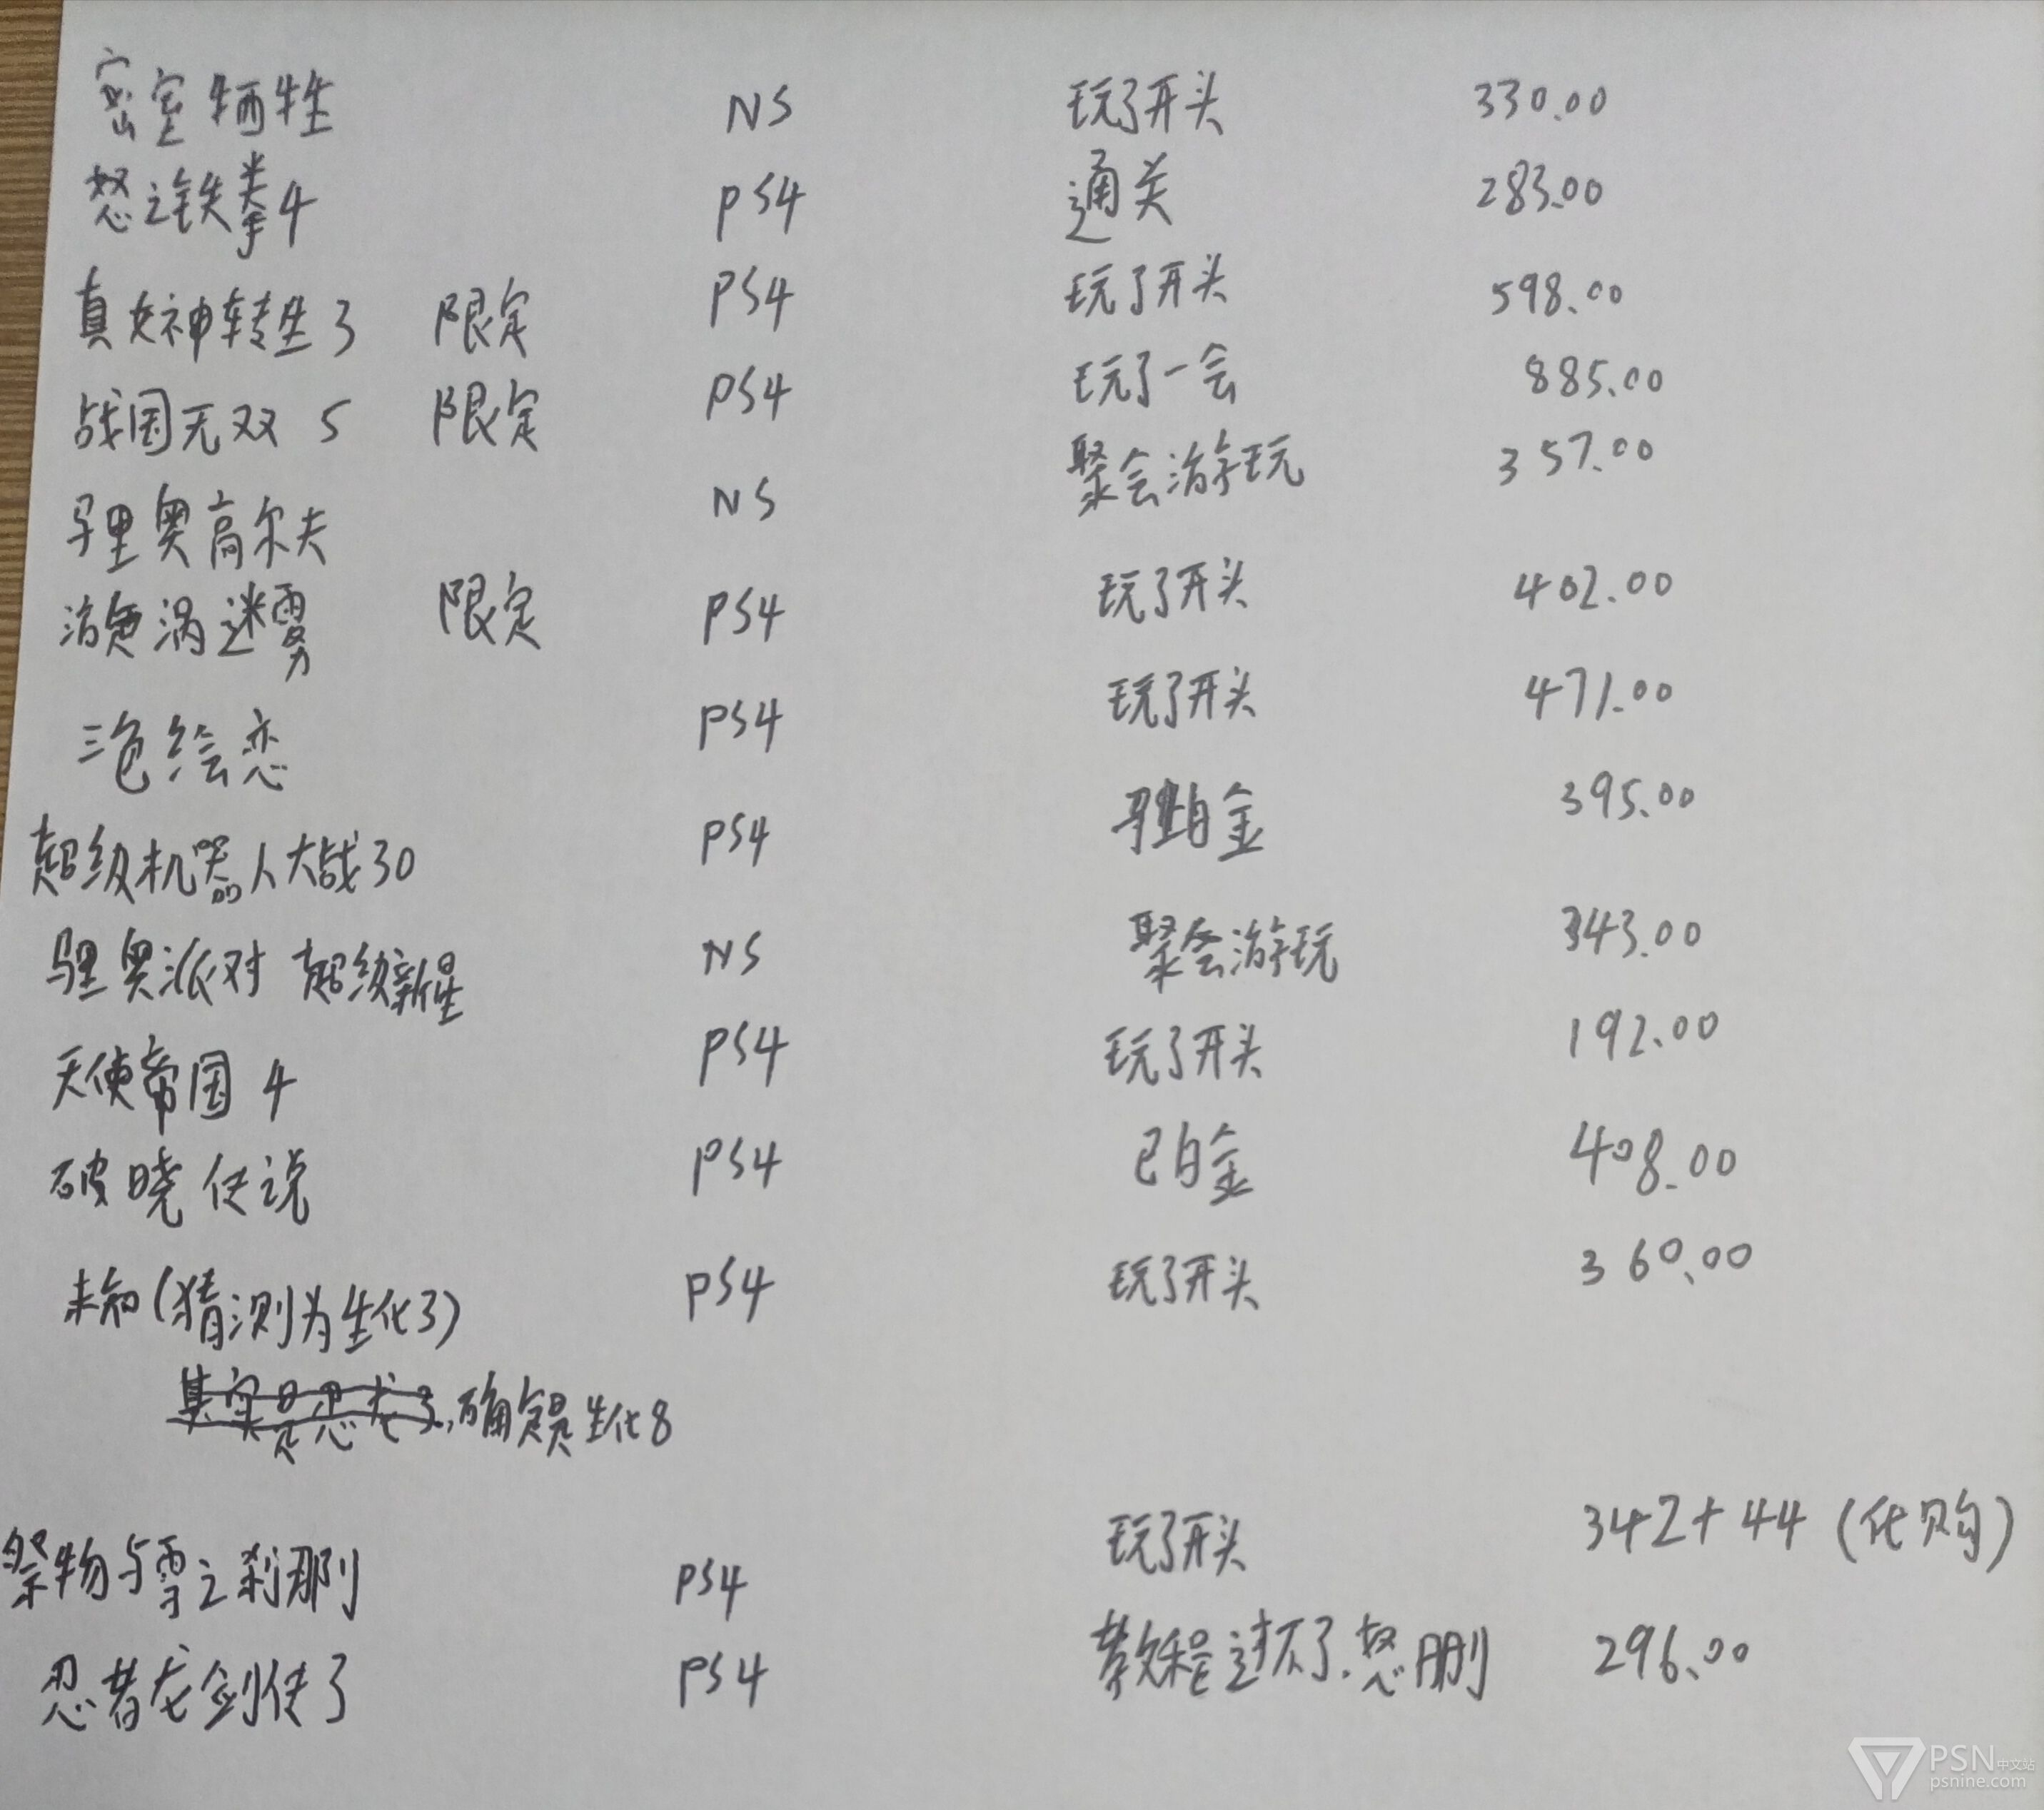 密室牺牲 NS 玩了开头 330.00
怒之铁拳4 PS4 通关 283.00
真女神转生3 限定 PS4 玩了开头 598.00
战国无双 5 限定 PS4 玩了一会 885.00
马里奥高尔夫 NS 聚会游玩 357.00
涡迷雾 限定 PS4 玩了开头 402.00
三色绘恋 PS4 玩了开头 471.00
超级机器人大战30 PS4 白金 395.00
马里奥派对 超级新星 NS 聚会游玩 343.00
天使帝国 4 PS4 玩了开头 192.00
破晓传说 PS4 已白金 408.00
未知(猜测为生化3) PS4 玩了开头 360.00
其实是忍龙3,确定是生化8
祭物与雪之刹那 PS4 玩了开头 342+44(代购)
忍者龙剑传3 PS4 教程过不了.怒删 296.00
PSN中文站
psnine.com